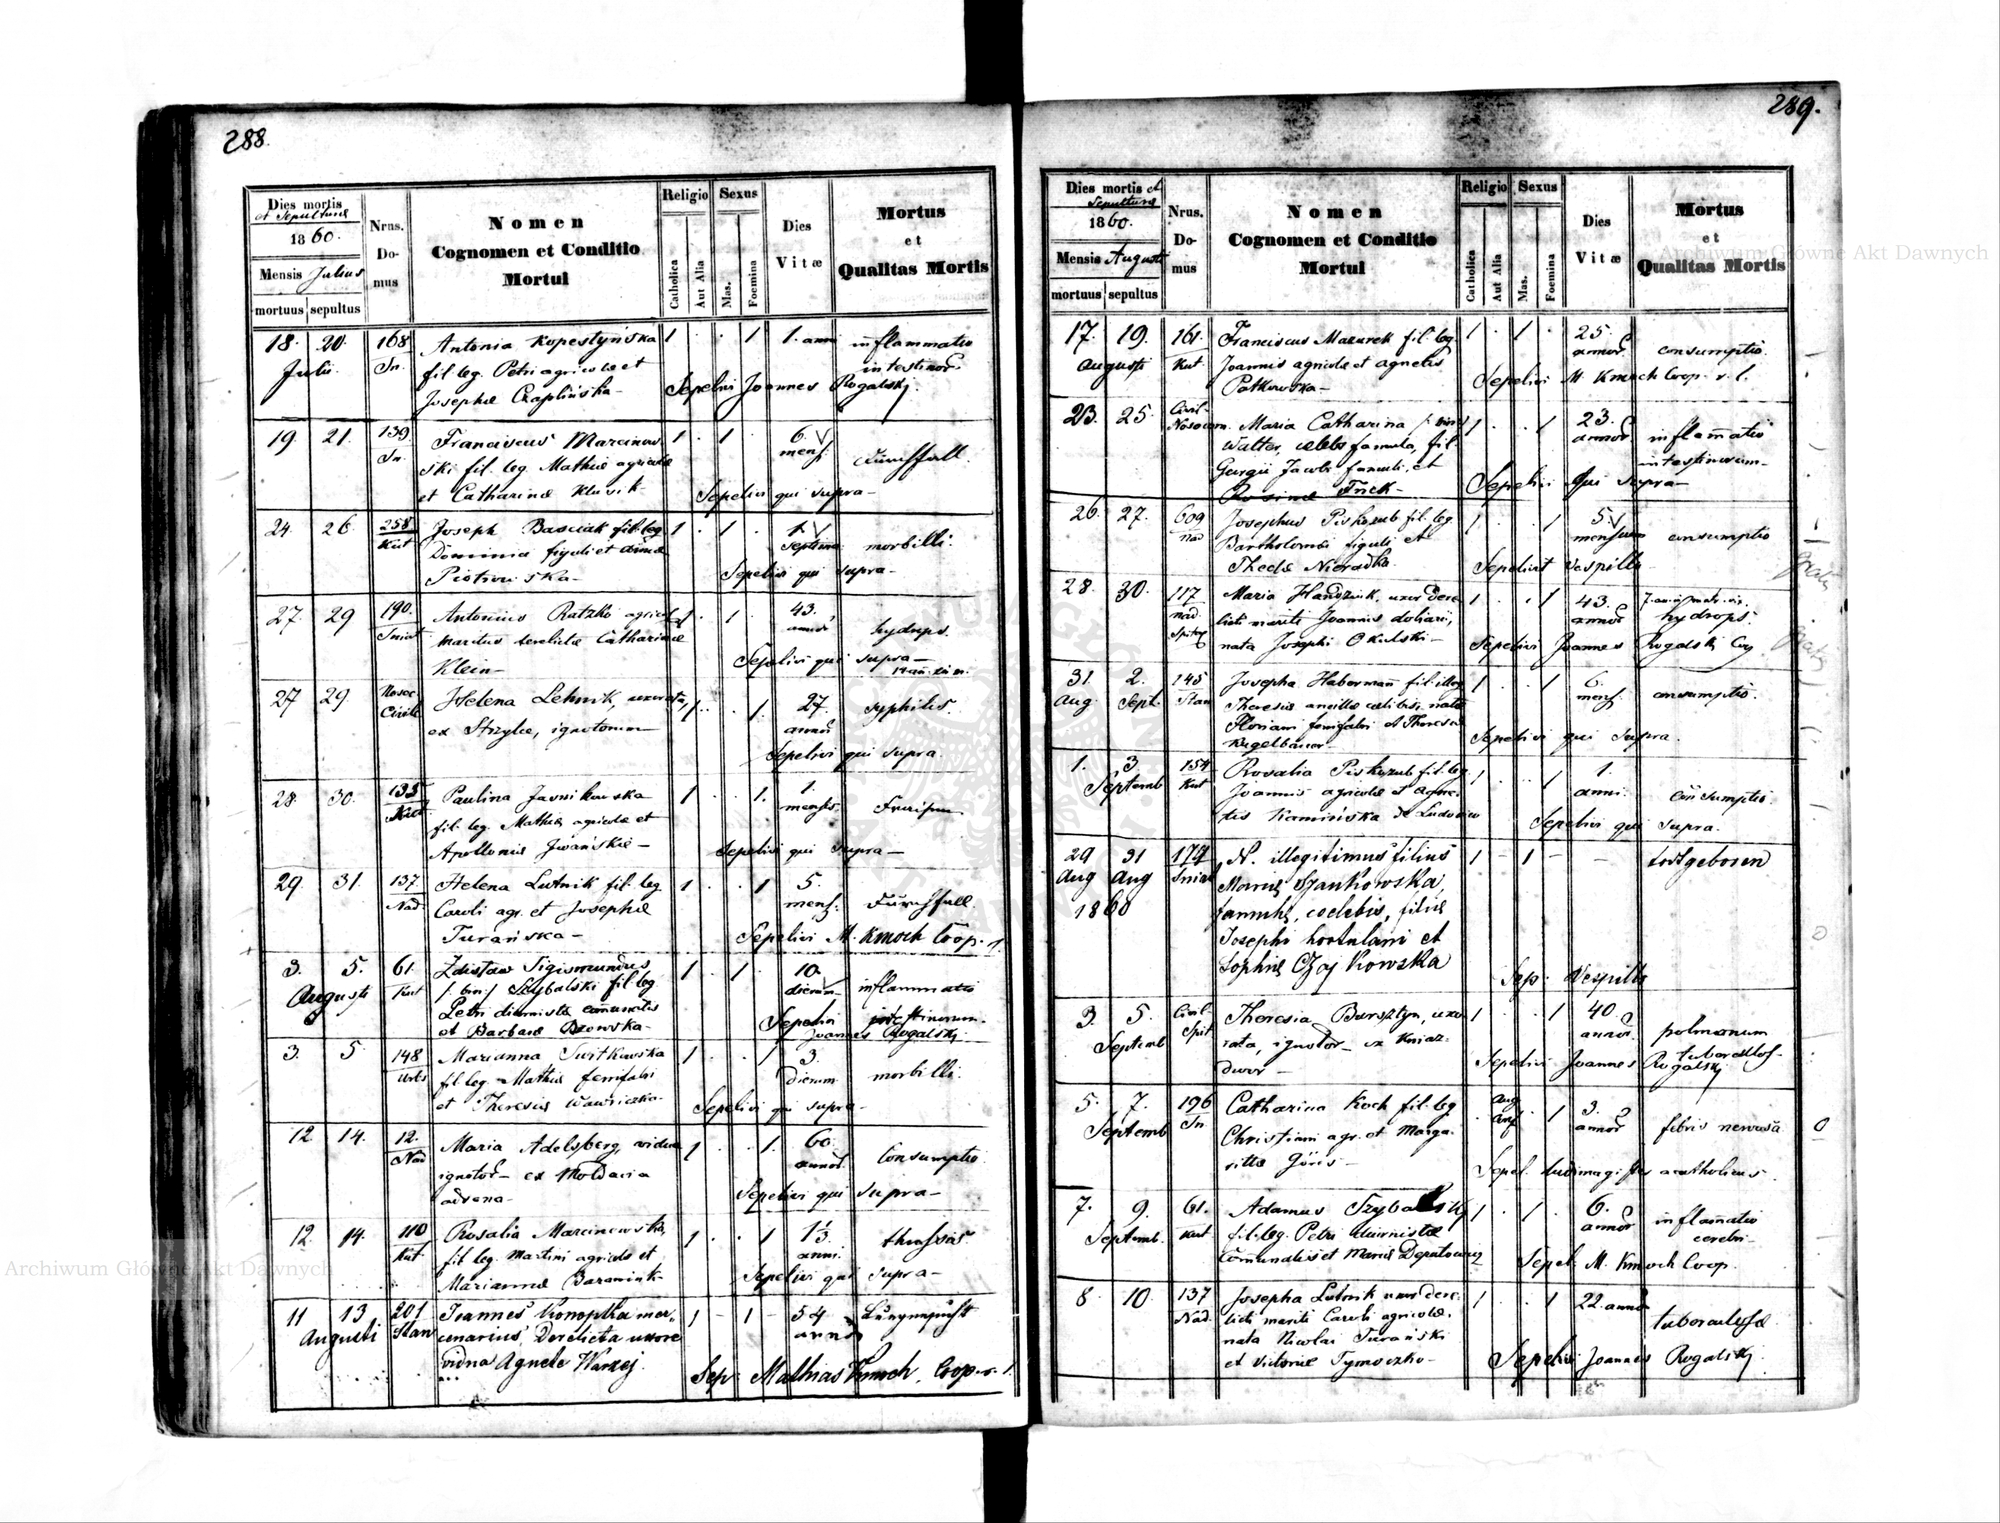 288.
Dies mortis
et Sepulturæ
1860.
Mensis Julius
mortuus sepultus
Nrus. Domus
Nomen
Cognomen et Conditio
Mortui
Religio
Catholica
Aut Alia
Sexus
Mas.
Foemina
Dies
Vitæ
Mortus
et
Qualitas Mortis
18. 20. 168 Antonia Kopestyńska 1 . . 1 1. anni inflammatio
Julii. Sn. fil. leg. Petri agricolæ et intestinor.
Josephæ Czaplińska – Sepelivi Joannes Rogalski.
19 21. 139 Franciscus Marcinow 1 . 1 . 6.
Sn. ski fil. leg. Mathiæ agricolæ mens. Durchfall.
et Catharinæ Kluvik – Sepelivi qui supra –
24. 26 258 Joseph Basciak fil. leg 1 . 1 . 1.
Kut figuli et Annæ Septima morbilli.
Piotrowska – Sepelivi qui supra –
27. 29 190. Antonius Ratzko agricol 1 . 1 . 43.
Sniat maritus derelictæ Catharinæ annor hydrops.
Klein – Sepelivi qui supra –
27 29 Nosoc. Helena Lehnik, uxorata, 1 . . 1. 27. syphilis.
Civile ex Stryke, ignotorum annor
Sepelivi qui supra.
28. 30. 135 Paulina Jasnikowska 1 . . 1. 1.
Kut fil. leg. Mathiæ agricolæ et mensis
Apolloniæ Iwańskie – Sepelivi qui supra –
29. 31. 137. Helena Lutnik fil. leg 1 . . 1 5.
Nad. Caroli agr. et Josephæ mens. Durchfall.
Turańska – Sepelivi M. Kmoch Coop.
3. 5. 61. Zdisław Sigismundus 1 . 1 . 10.
Augusti Kut /: bin :/ Szybalski fil. leg dierum inflammatio
Petri diurnistæ communalis intestinorum.
et Barbaræ Bzowska – Sepelivi Joannes Rogalski
3. 5 148 Marianna Switkowska 1 . . 1 3.
Urbs fil. leg. Mathiæ ferrifabri dierum morbilli.
et Theresiæ Wawriczka. Sepelivi qui supra –
12 14. 12. Maria Adelsberg, vidua 1 . . 1. 60.
Nad ignotor – ex Moldavia annor. Consumptio.
advena – Sepelivi qui supra –
12. 14. 110 Rosalia Marcinewska, 1 . . 1 1⅓
Kut. fil. leg. Martini agricolæ et anni.
Mariannæ Baraniuk – Sepelivi qui supra –
11 13 201 Joannes Konopka mer- 1 – 1 – 54
Augusti Stan cenarius, Derelicta uxore annor
vidua Agnete Warzej.
Sep. Mathias Kmoch, Coop. r. l.
289.
Dies mortis et
Sepulturæ
1860.
Mensis Augusti
mortuus sepultus
Nrus. Domus
Nomen
Cognomen et Conditio
Mortui
Religio
Catholica
Aut Alia
Sexus
Mas.
Foemina
Dies
Vitæ
Mortus
et
Qualitas Mortis
17. 19. 161. Franciscus Mazurek fil. leg 1 . 1 . 25.
Augusti Kut. Joannis agricolæ et Agnetis annor consumptio.
Patkowska – Sepelivi M. Kmoch Coop. r. l.
23. 25. Civil- Maria Catharina /: bin :/ 1 . . 1 23.
Nosocom. Walter, cælebs famula, fil. annor inflammatio
Georgii Jacobi famuli, et intestinorum –
Rosinæ Frick – Sepelivi qui supra –
26. 27. 609 Josephus Piskozub fil. leg. 1 . . 1 5.
Nad Bartholomæi figuli et mensium consumptio
Theclæ Nieradka. Sepelivit Vespillo
28. 30. 117 Maria Handziuk, uxor dere- 1 . . 1 43.
Nad. licti mariti Joannis doliari, annor hydrops.
nata Josephi Okulski – Sepelivi Joannes Rogalski Coop
31. 2. 145 Josepha Habermañ fil. illeg 1 . . 1 6.
Aug. Sept. Stan Theresiæ ancillæ cælibis, natæ mens. consumptio.
Floriani ferrifabri et Theresiæ
Kugelbauer – Sepelivi qui supra.
1. 3. 154 Rosalia Piskozub fil. leg. 1 . . 1 1.
Septemb Kut Joannis agricolæ et Agne- anni. consumptio.
tis Kamińska de Ludovico Sepelivi qui supra.
29 31 174 N. illegitimus filius 1 – 1 – – todtgeboren
Aug Aug Sniat Mariæ Szankowska,
1860 famulæ, coelebis, filiæ
Josephi hortulani et
Sophiæ Czajkowska Sep: Vespillo
3. 5. Civil- Theresia Bursztyn, uxo 1 . . 1 40.
Septemb Spit rata, ignotor – ex Kniaz- annor. pulmonum
dwor – Sepelivi Joannes Rogalski
5. 7. 196 Catharina Koch fil. leg. Aug . 1 3.
Septemb Sn. Christiani agr. et Marga- Conf annor febris nervosa
rittæ Göris – Sepel. ludimagister acatholicus.
7. 9. 61. Adamus Szybalski 1 . 1 . 6.
Septemb. Kut fil. leg. Petri diurnistæ annor inflamatio
communalis et Mariæ cerebri –
Sepel. M. Kmoch Coop.
8 10. 137 Josepha Lutnik uxor dere- 1 . . 1 22. annor
Nad. licti mariti Caroli agricolæ, tuberculosæ
nata Nicolai Turański
et Victoriæ Tymoczko – Sepelivi Joannes Rogalski
Archiwum Główne Akt Dawnych
Archiwum Główne Akt Dawnych